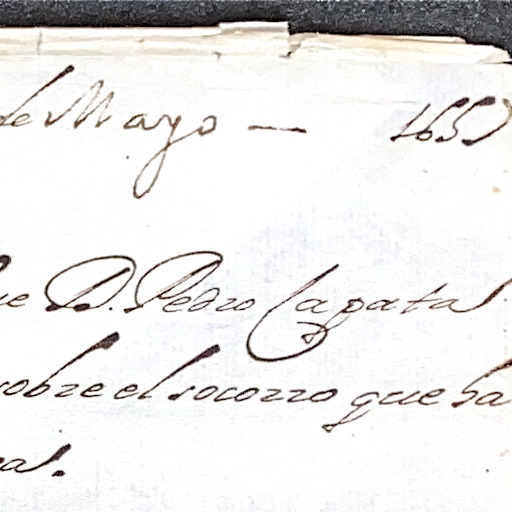 de Mayo — 165
ue D. Pedro Çapata
sobre el socorro que ha
as.